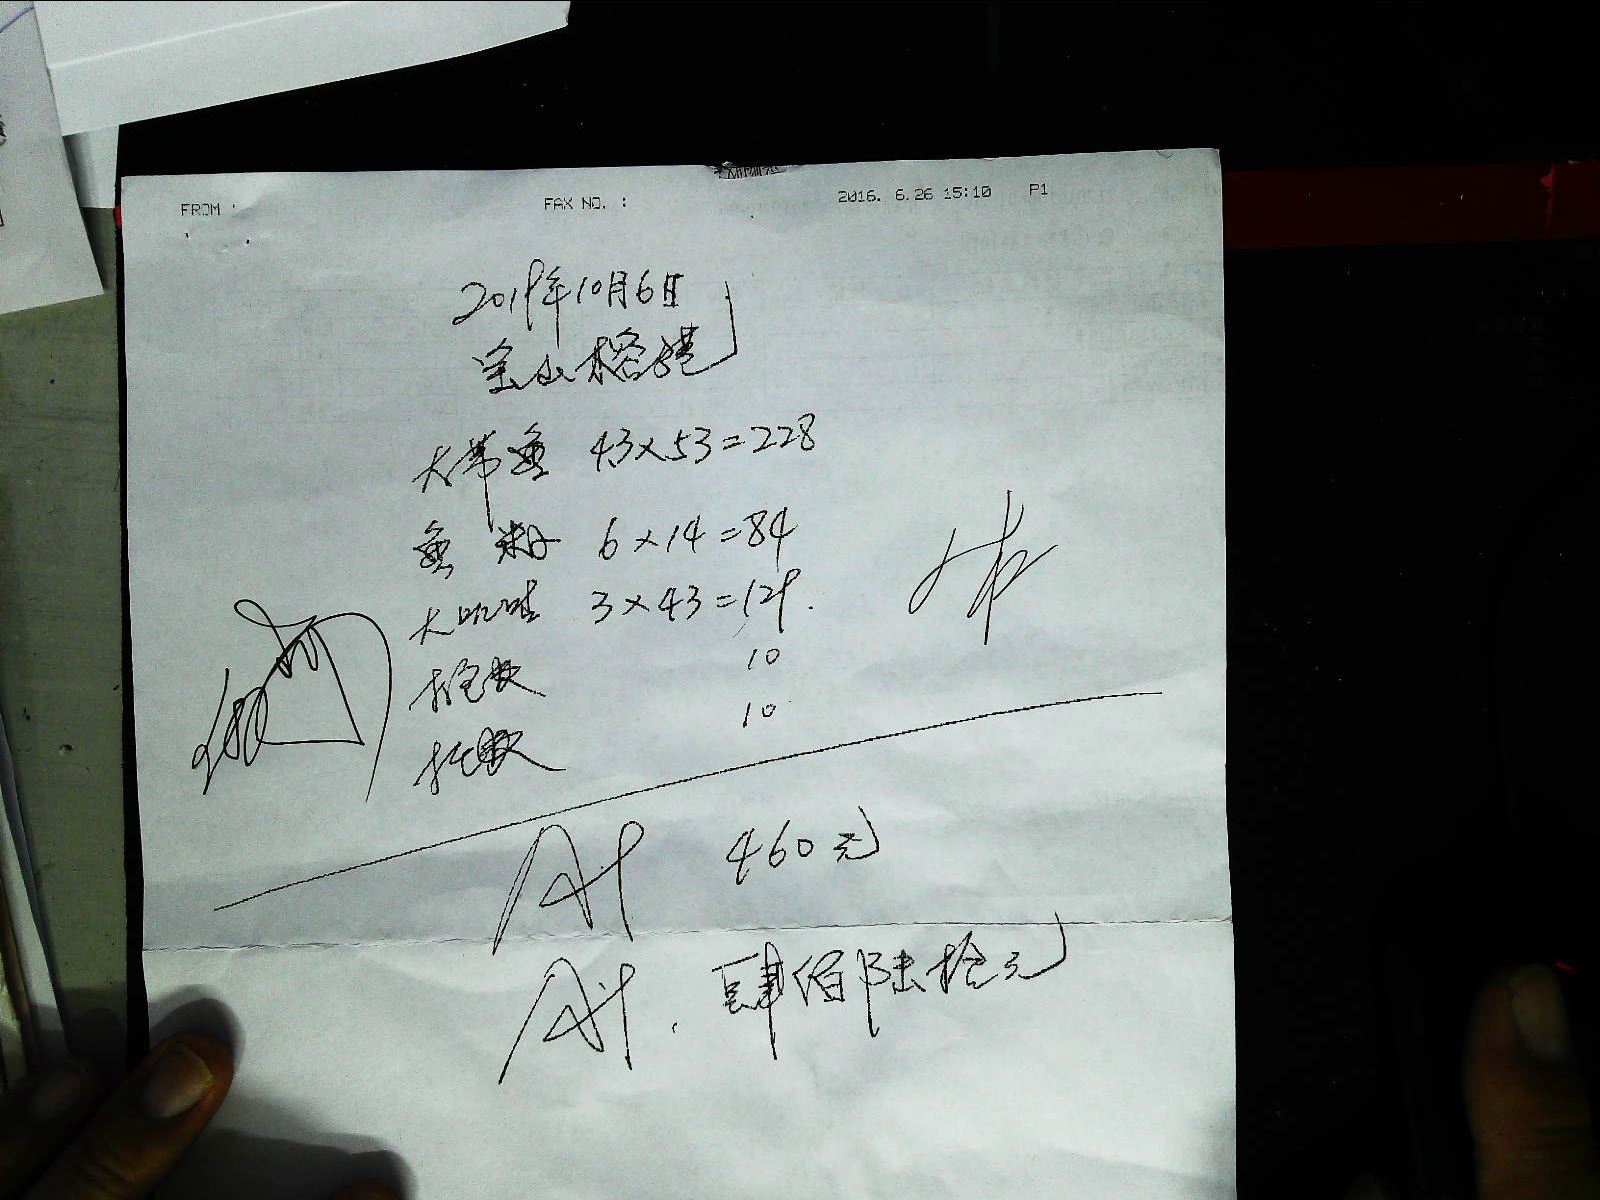 FROM :
FAX NO. :
2016. 6.26 15:10 P1
2019年10月6日
宝山榕港
大带鱼 43×53=228
鱼 籽 6×14=84
大 3×43=129.
10
10
460元
肆佰陆拾元